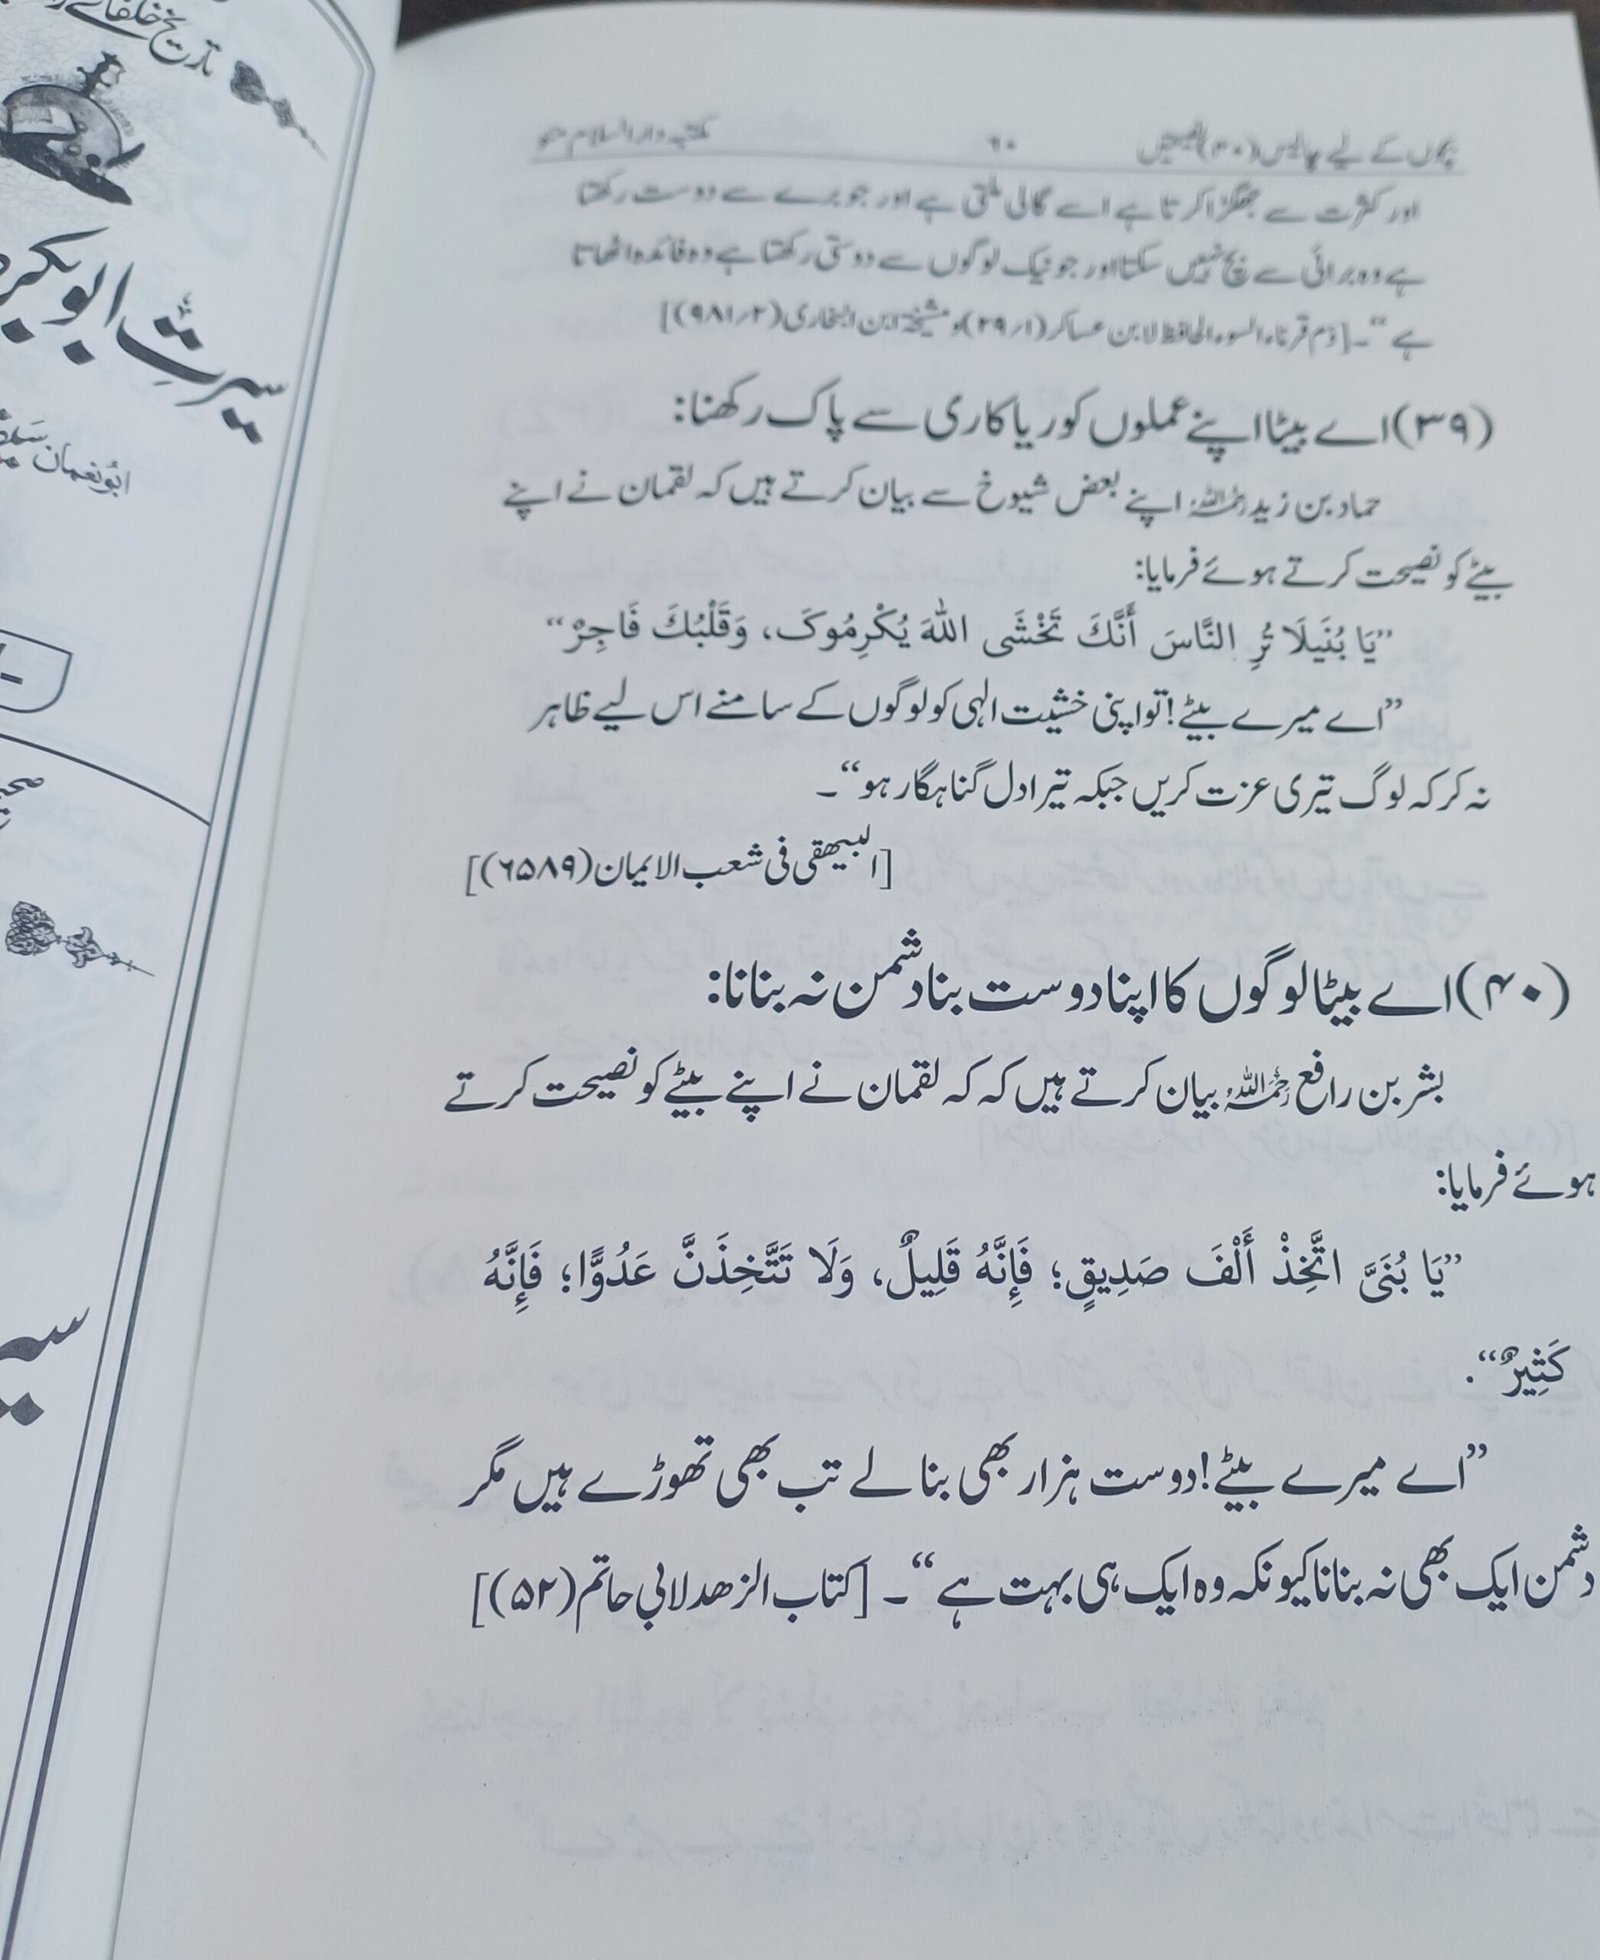 بچوں کے لیے چالیس (۴۰) نصیحتیں
۶۰
مکتبہ دارالسلام مئو
اور کثرت سے جھگڑا کرتا ہے اسے گالی ملتی ہے اور جو برے سے دوست رکھتا
ہے وہ برائی سے بچ نہیں سکتا اور جو نیک لوگوں سے دوستی رکھتا ہے وہ فائدہ اٹھاتا
ہے“۔ [ذم قرناء السوء الحافظ لابن عساکر (۲۹/۱) و مشیخۃ ابن البخاری (۹۸۱/۲)]
(۳۹) اے بیٹا اپنے عملوں کو ریا کاری سے پاک رکھنا:
حماد بن زید رحمہ اللہ اپنے بعض شیوخ سے بیان کرتے ہیں کہ لقمان نے اپنے
بیٹے کو نصیحت کرتے ہوئے فرمایا:
”يَا بُنَيلَا تُرِ النَّاسَ أَنَّكَ تَخْشَى اللهَ يُكْرِمُوكَ، وَقَلْبُكَ فَاجِرٌ“
”اے میرے بیٹے! تو اپنی خشیت الہی کو لوگوں کے سامنے اس لیے ظاہر
نہ کر کہ لوگ تیری عزت کریں جبکہ تیرا دل گناہگار ہو“۔
[البیھقی فی شعب الایمان (۶۵۸۹)]
(۴۰) اے بیٹا لوگوں کا اپنا دوست بنا دشمن نہ بنانا:
بشر بن رافع رحمہ اللہ بیان کرتے ہیں کہ کہ لقمان نے اپنے بیٹے کو نصیحت کرتے
ہوئے فرمایا:
”يَا بُنَيَّ اتَّخِذْ أَلْفَ صَدِيقٍ؛ فَإِنَّهُ قَلِيلٌ، وَلَا تَتَّخِذَنَّ عَدُوًّا؛ فَإِنَّهُ
كَثِيرٌ“.
”اے میرے بیٹے! دوست ہزار بھی بنالے تب بھی تھوڑے ہیں مگر
دشمن ایک بھی نہ بنانا کیونکہ وہ ایک ہی بہت ہے“۔ [کتاب الزھد لابي حاتم (۵۲)]
سیرتِ ابوبکر
ابونعمان